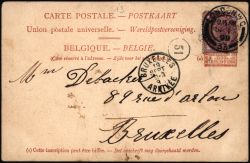 CARTE POSTALE. — POSTKAART
Union postale universelle. — Wereldpostvereeniging.
BELGIQUE. — BELGIË.
(Côté réservé à l'adresse. — Zijde voor het
51
BRUXELLES
ARRIVÉE
Mme Débacker
89 rue d'arlon
Bruxelles
(a) Cette inscription peut être biffée. — Dit opschrift mag doorgehaald worden.